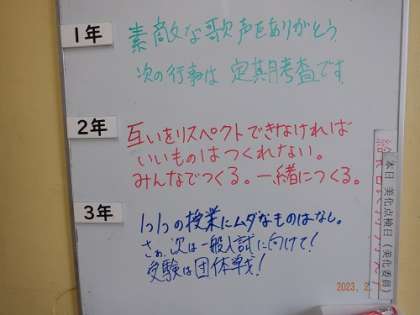 1年
素敵な歌声をありがとう
次の行事は 定期考査です
2年
互いをリスペクトできなければ
いいものはつくれない。
みんなでつくる。一緒につくる。
3年
1つ1つの授業にムダなものはなし。
さぁ、次は一般入試に向けて!
受験は団体戦!
本日 美化点検日(美化委員)
2023. 2.